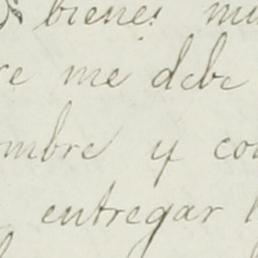 bienes mu
re me debe
ombre y con
entregar l